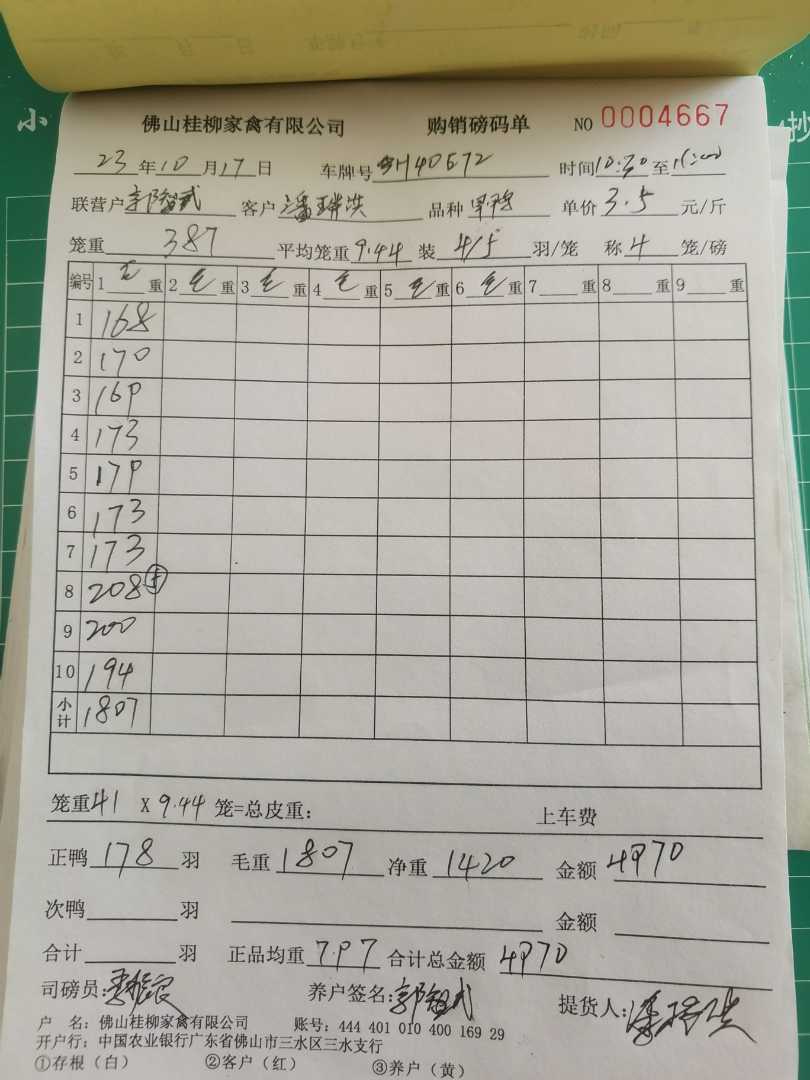 小
抄
佛山桂柳家禽有限公司 购销磅码单 NO 0004667
23年10月17日 车牌号 H40E72 时间10:30至11:00
联营户 郭 武 客户 潘瑞洪 品种 单价3.5元/斤
笼重 387 平均笼重9.44 装 4/5 羽/笼 称4笼/磅
编号 1毛重 2毛重 3毛重 4毛重 5毛重 6毛重 7 重 8 重 9 重
1 168
2 170
3 169
4 173
5 179
6 173
7 173
8 208 ⑤
9 200
10 194
小计 1807
笼重41 X 9.44 笼=总皮重： 上车费
正鸭 178 羽 毛重 1807 净重 1420 金额 4970
次鸭 羽 金额
合计 羽 正品均重 7.97 合计总金额 4970
司磅员： 养户签名：郭 武 提货人：潘瑞洪
户 名：佛山桂柳家禽有限公司 账号：444 401 010 400 169 29
开户行：中国农业银行广东省佛山市三水区三水支行
①存根（白） ②客户（红） ③养户（黄）